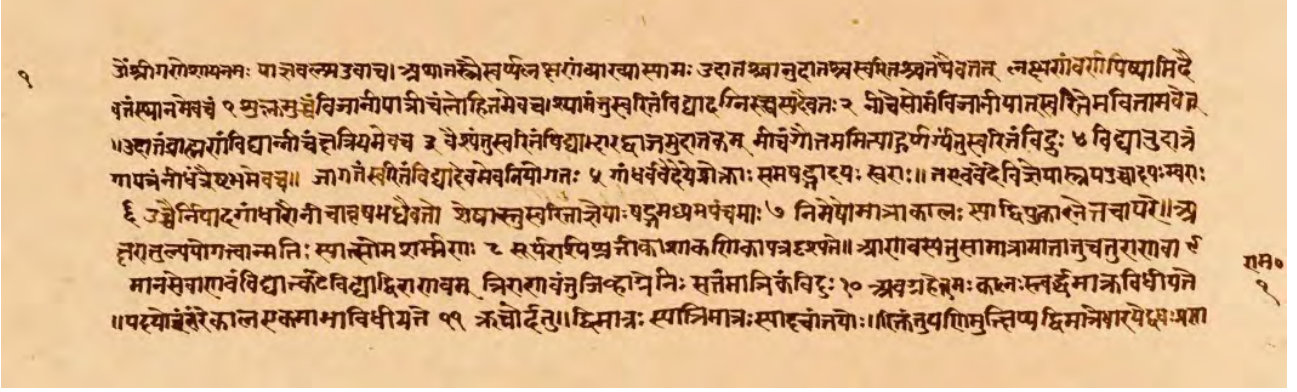 १
ॐ श्रीगणेशायनमः याज्ञवल्क्यउवाच। अथातस्त्रैस्वर्य्यलक्षणंव्याख्यास्यामः उदातश्चानुदातश्चस्वरितश्चतथैवतत् लक्षणंवर्णयिष्यामिदै
वतंस्थानमेवच १ शुक्लमुच्चंविजानीयान्नीचंलोहितमेवच। श्यामंतुस्वरितंविद्यादग्निरुच्चस्यदैवतः २ नीचेसोमंविजानीयात्स्वरितेसविताभवेत्
॥उदातंब्राह्मणंविद्यान्नीचंक्षत्रियमेवच ३ वैश्यंतुस्वरितंविद्याद्भारद्वाजमुदातकम् नीचंगौतममित्याहुर्गार्ग्यंतुस्वरितंविदुः ४ विद्यादुदात्तं
गायत्रंनीचंत्रैष्टुभमेवच॥ जागतंस्वरितंविद्यादेवमेवनियोगतः ५ गांधर्ववेदेयेप्रोक्ताः सप्तषड्जादयः स्वराः॥ तएववेदेविज्ञेयास्त्रयउच्चादयःस्वराः
६ उच्चैर्निषादगांधारौनीचावृषभधैवतौ शेषास्तुस्वरिताज्ञेयाःषड्जमध्यमपंचमाः ७ निमेषोमात्राकालः स्याद्विद्युत्कालेतिचापरे॥अ
क्षरातुल्ययोगत्वान्मतिः स्यात्सोमशर्म्मणः ८ सूर्यरश्मिप्रतीकाशाकणिकायत्रदृश्यते॥ आणवस्यतुसामात्रामात्रातुचतुराणवा ९
मानसेचाणवंविद्यात्कंठेविद्याद्द्विराणवम् त्रिराणवंतुजिव्हाग्रेनिः सृतंमात्रिकंविदुः १० अवग्रहेतुयः कालःस्त्वर्द्धमात्राविधीयते
॥पदयोरंतरेकालएकमात्राविधीयते ११ ऋचोर्द्धेतु॥द्विमात्रः स्यात्त्रिमात्रःस्यादृचांतयोः।
राम०
१